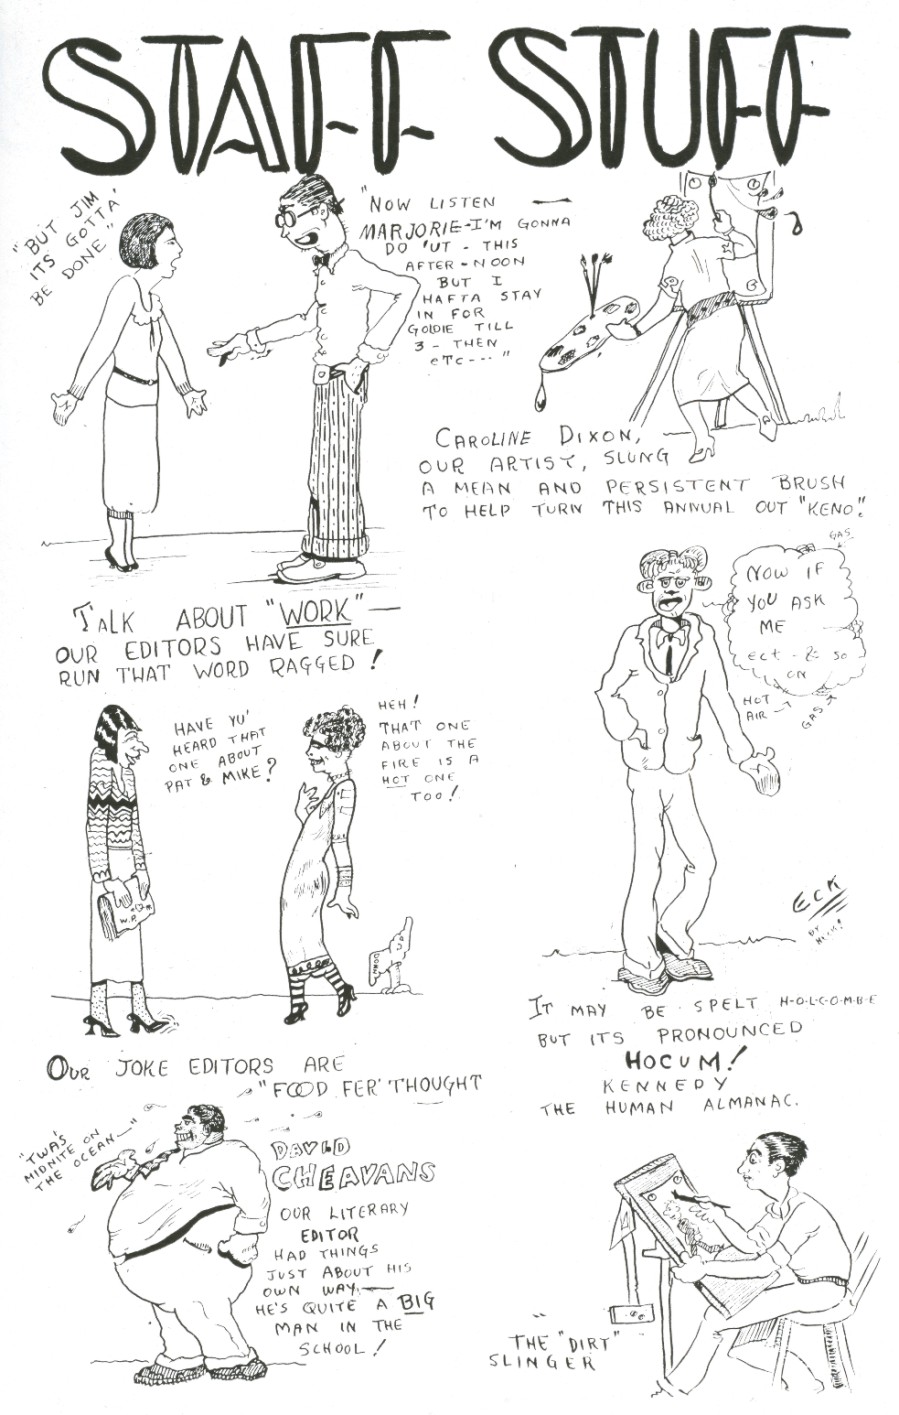 STAFF STUFF
"BUT JIM
ITS GOTTA'
BE DONE"
"NOW LISTEN —
MARJORIE-I'M GONNA
DO 'UT - THIS
AFTER-NOON
BUT I
HAFTA STAY
IN FOR
GOLDIE TILL
3 - THEN
eTC---"
CAROLINE DIXON,
OUR ARTIST, SLUNG
A MEAN AND PERSISTENT BRUSH
TO HELP TURN THIS ANNUAL OUT "KENO".
TALK ABOUT "WORK" —
OUR EDITORS HAVE SURE
RUN THAT WORD RAGGED!
GAS
NOW IF
YOU ASK
ME
ect - & so
ON
HOT
AIR
GAS
HAVE YU'
HEARD THAT
ONE ABOUT
PAT & MIKE?
HEH!
THAT ONE
ABOUT THE
FIRE IS A
HOT ONE
TOO!
ECK
BY
IT MAY BE SPELT H-O-L-C-O-M-B-E
BUT ITS PRONOUNCED
HOCUM!
KENNEDY
THE HUMAN ALMANAC.
OUR JOKE EDITORS ARE
"FOOD FER' THOUGHT
"TWAS
MIDNITE ON
THE OCEAN—"
DAVID
CHEAVANS
OUR LITERARY
EDITOR
HAD THINGS
JUST ABOUT HIS
OWN WAY—
HE'S QUITE A BIG
MAN IN THE
SCHOOL!
THE "DIRT"
SLINGER